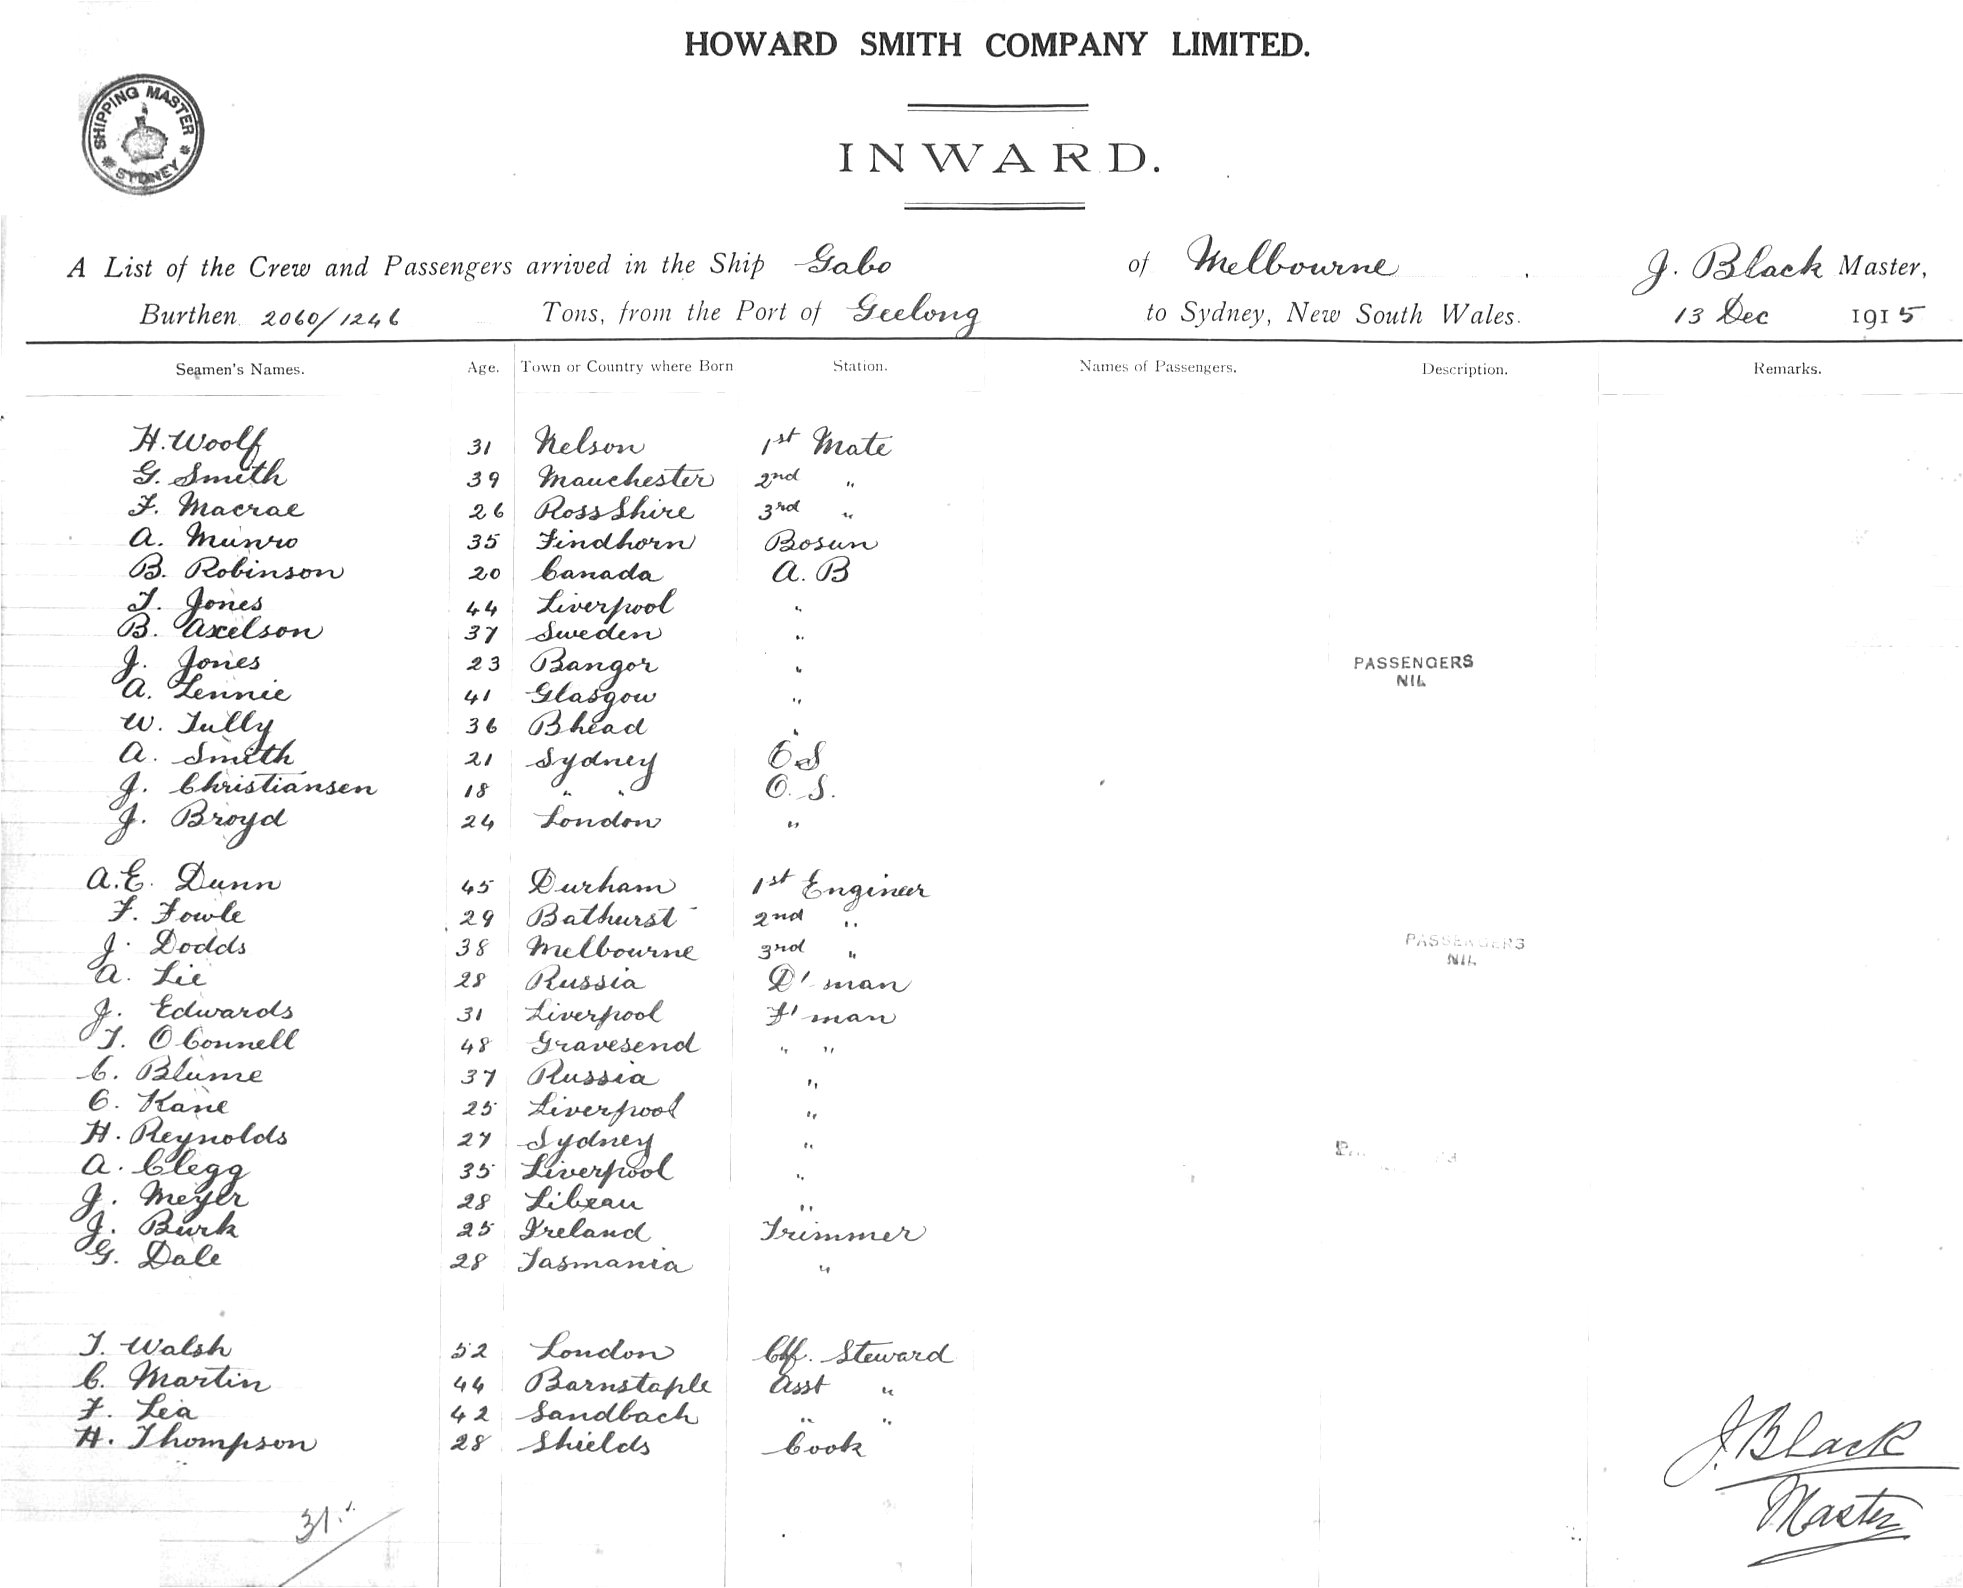 HOWARD SMITH COMPANY LIMITED.
SHIPPING MASTER SYDNEY
INWARD.
A List of the Crew and Passengers arrived in the Ship Gabo of Melbourne J. Black Master,
Burthen 2060/1246 Tons, from the Port of Geelong to Sydney, New South Wales. 13 Dec 1915
Seamen's Names. Age. Town or Country where Born Station. Names of Passengers. Description. Remarks.
H. Woolf 31 Nelson 1st Mate
G. Smith 39 Manchester 2nd "
F. Macrae 26 Ross Shire 3rd "
A. Munro 35 Findhorn Bosun
B. Robinson 20 Canada A. B
T. Jones 44 Liverpool "
B. Axelson 37 Sweden "
J. Jones 23 Bangor "
PASSENGERS
NIL
A. Lennie 41 Glasgow "
W. Tully 36 Bhead "
A. Smith 21 Sydney O S
J. Christiansen 18 " " O. S.
J. Broyd 24 London "
A.E. Dunn 45 Durham 1st Engineer
F. Fowle 29 Bathurst 2nd "
J. Dodds 38 Melbourne 3rd "
PASSENGERS
NIL
A. Lie 28 Russia D' man
J. Edwards 31 Liverpool F' man
T. OConnell 48 Gravesend " "
C. Blume 37 Russia "
C. Kane 25 Liverpool "
H. Reynolds 27 Sydney "
A. Clegg 35 Liverpool "
J. Meyer 28 Libeau "
J. Burk 25 Ireland Trimmer
G. Dale 28 Tasmania "
T. Walsh 52 London Chf. Steward
C. Martin 44 Barnstaple Asst "
F. Lea 42 Sandbach " "
H. Thompson 28 Shields Cook
J. Black
Master
31